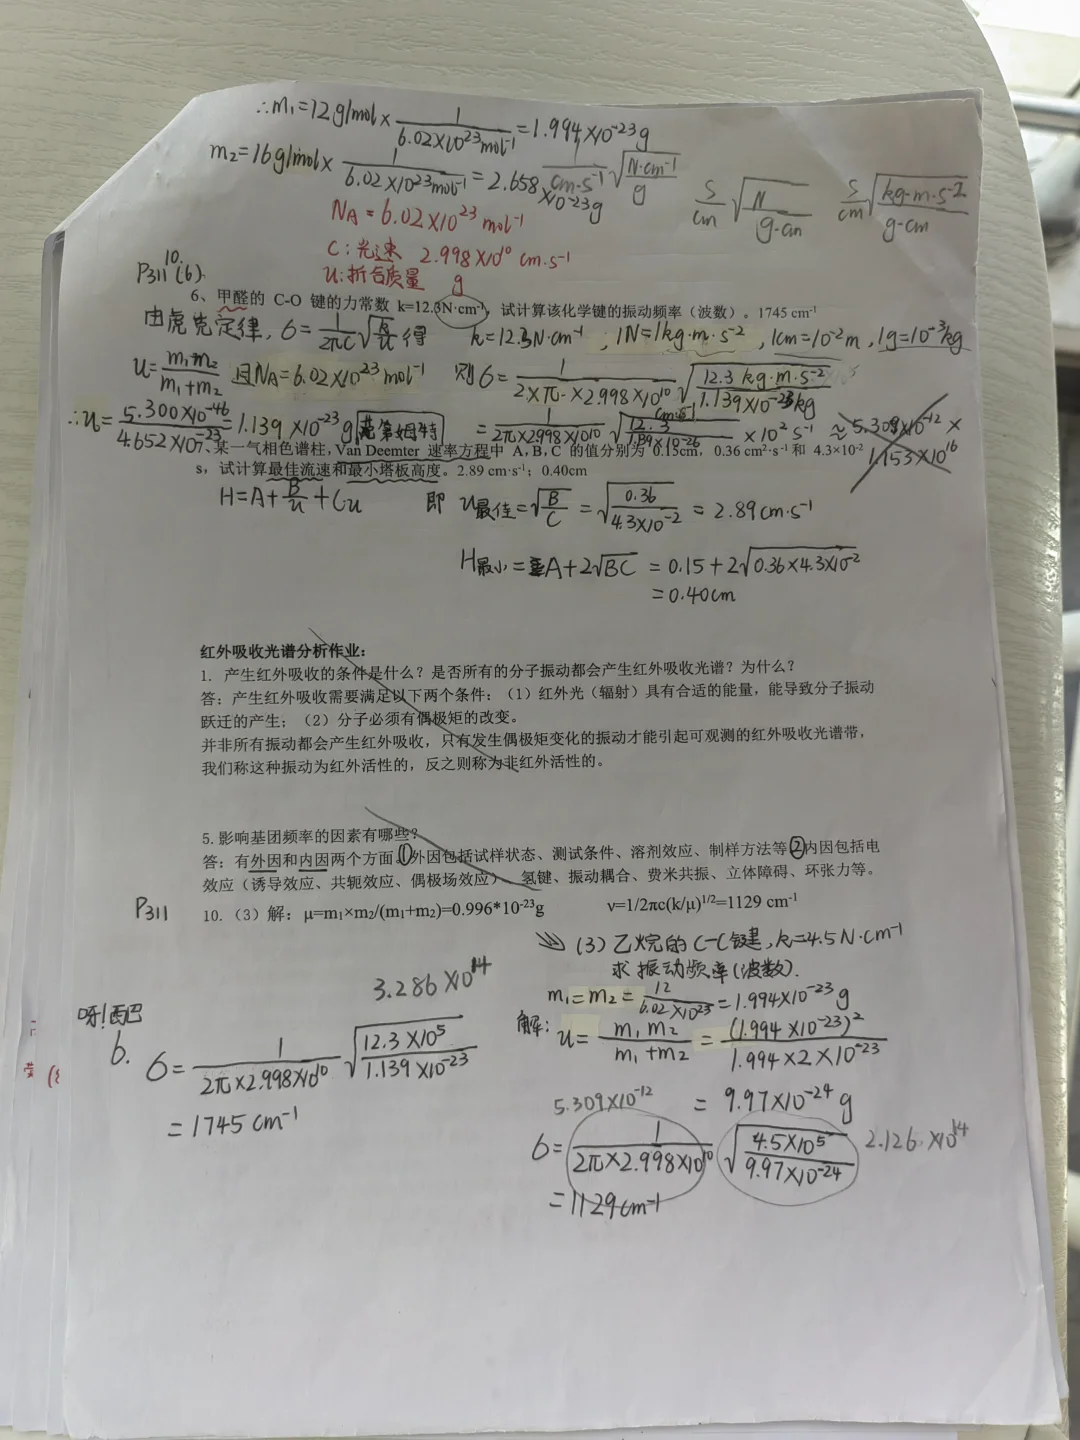 ∴m₁=12g/mol×1/6.02×10²³mol⁻¹=1.994×10⁻²³g
m₂=16g/mol×1/6.02×10²³mol⁻¹=2.658×10⁻²³g
1/cm·s⁻¹√N·cm⁻¹/g
s/cm√N/g·cm
s/cm√kg·m·s⁻²/g·cm
NA=6.02×10²³mol⁻¹
C:光速 2.998×10¹⁰cm·s⁻¹
u:折合质量 g
P311 10.(6).
6、甲醛的 C-O 键的力常数 k=12.3N·cm⁻¹，试计算该化学键的振动频率（波数）。1745 cm⁻¹
由虎克定律, σ=1/2πc√k/u得
k=12.3N·cm⁻¹, 1N=1kg·m·s⁻², 1cm=10⁻²m, 1g=10⁻³kg
u=m₁m₂/m₁+m₂ 且NA=6.02×10²³mol⁻¹
则σ=1/2×π×2.998×10¹⁰√12.3kg·m·s⁻²/1.139×10⁻²³kg
∴u=5.300×10⁻⁴⁶/4.652×10⁻²³=1.139×10⁻²³g
=1/2π×2.998×10¹⁰√12.3/1.139×10⁻²⁶×10²s⁻¹≈5.309×10⁻¹²×1.153×10¹⁶
范第姆特
7、某一气相色谱柱，Van Deemter 速率方程中 A, B, C 的值分别为 0.15cm，0.36 cm²·s⁻¹和 4.3×10⁻²
s，试计算最佳流速和最小塔板高度。2.89 cm·s⁻¹；0.40cm
H=A+B/u+Cu 即 u最佳=√B/C=√0.36/4.3×10⁻²=2.89cm·s⁻¹
H最小=A+2√BC=0.15+2√0.36×4.3×10⁻²
=0.40cm
红外吸收光谱分析作业：
1. 产生红外吸收的条件是什么？是否所有的分子振动都会产生红外吸收光谱？为什么？
答：产生红外吸收需要满足以下两个条件：（1）红外光（辐射）具有合适的能量，能导致分子振动
跃迁的产生；（2）分子必须有偶极矩的改变。
并非所有振动都会产生红外吸收，只有发生偶极矩变化的振动才能引起可观测的红外吸收光谱带，
我们称这种振动为红外活性的，反之则称为非红外活性的。
5.影响基团频率的因素有哪些？
答：有外因和内因两个方面。①外因包括试样状态、测试条件、溶剂效应、制样方法等②内因包括电
效应（诱导效应、共轭效应、偶极场效应）、氢键、振动耦合、费米共振、立体障碍、环张力等。
P311
10.（3）解：μ=m₁×m₂/(m₁+m₂)=0.996*10⁻²³g ν=1/2πc(k/μ)¹ᐟ²=1129 cm⁻¹
(3)乙烷的C-C键, k=4.5N·cm⁻¹
求振动频率(波数).
3.286×10¹⁴
m₁=m₂=12/6.02×10²³=1.994×10⁻²³g
呀!西巴
解: u=m₁m₂/m₁+m₂=(1.994×10⁻²³)²/1.994×2×10⁻²³
6. σ=1/2π×2.998×10¹⁰√12.3×10⁵/1.139×10⁻²³
=1745cm⁻¹
5.309×10⁻¹² =9.97×10⁻²⁴g
σ=1/2π×2.998×10¹⁰√4.5×10⁵/9.97×10⁻²⁴ 2.126×10¹⁴
=1129cm⁻¹